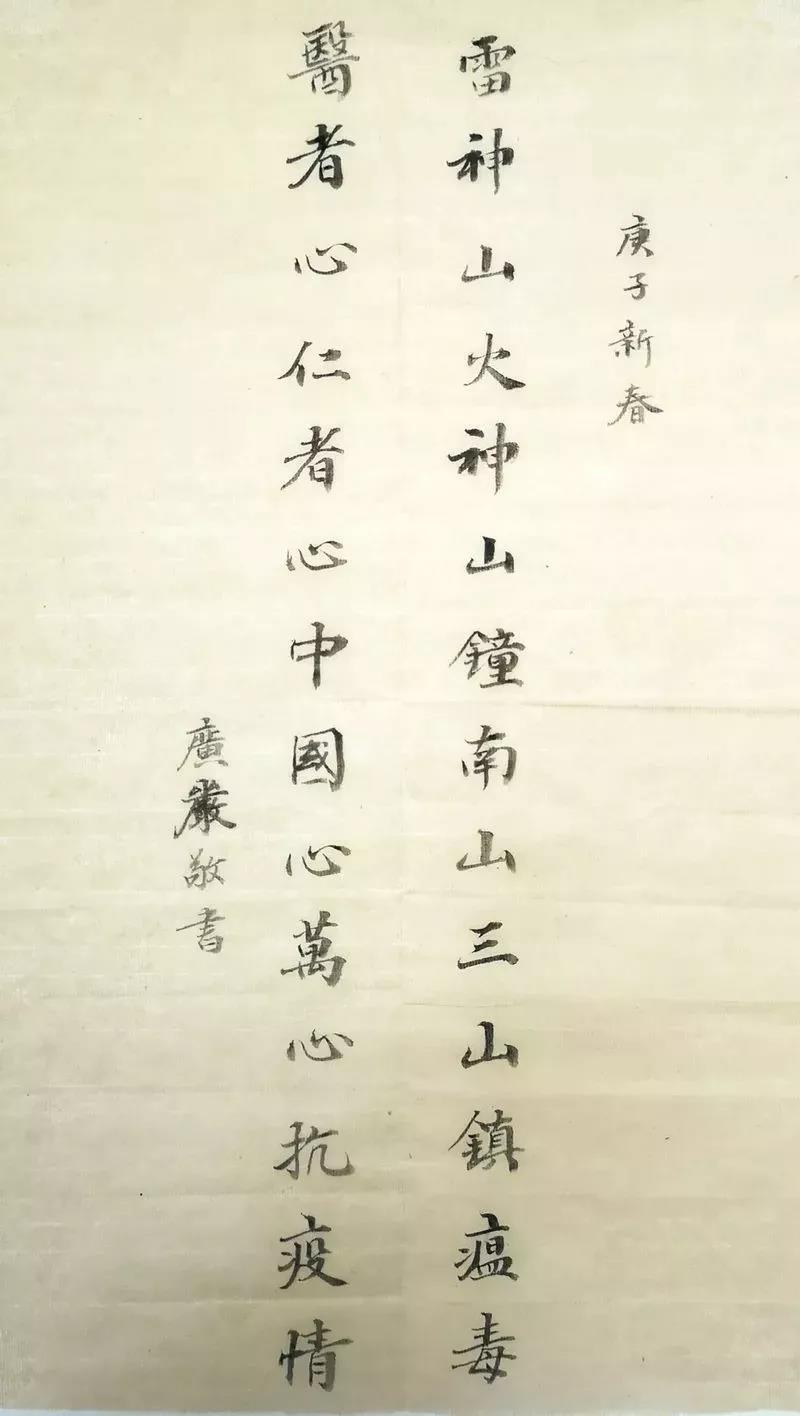 庚子新春
雷神山火神山鐘南山三山鎮瘟毒
醫者心仁者心中國心萬心抗疫情
廣嚴敬書